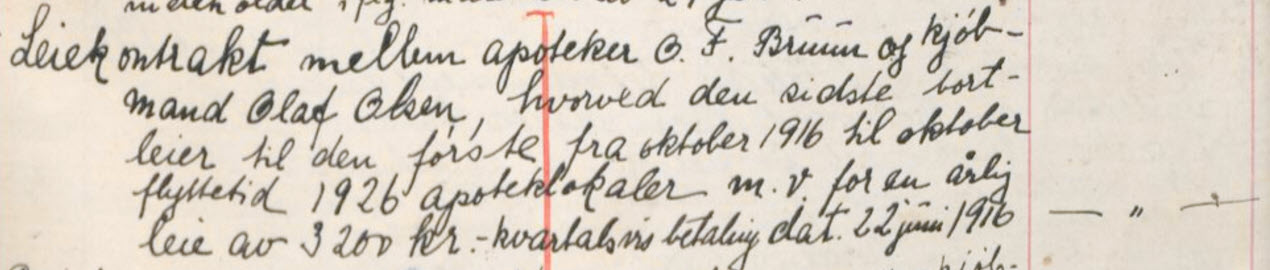 Leiekontrakt mellem apoteker O. F. Bruun og kjøb-
mand Olaf Olsen, hvorved den sidste bort-
leier til den første fra oktober 1916 til oktober
flyttetid 1926 apoteklokaler m. v for en årlig
leie av 3200 kr.- kvartalsvis betaling dat. 22 juni 1916 — „ —